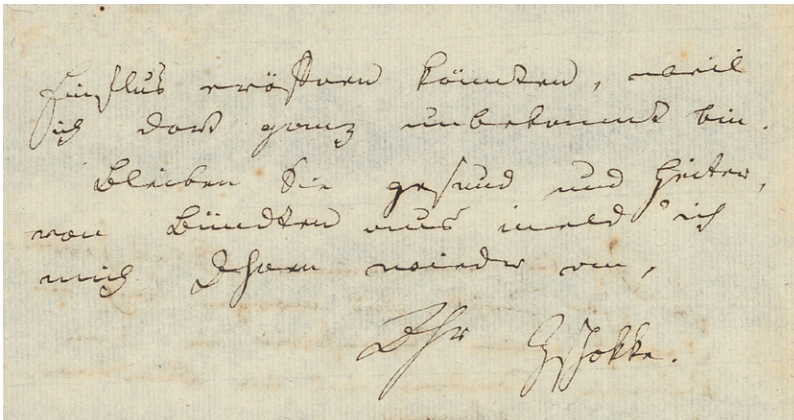 Einflus eröfnen könnten, weil
ich dort ganz unbekannt bin.
Bleiben Sie gesund und heiter,
von Bündten aus meld' ich
mich Ihnen wieder an,
Ihr Zschokke.